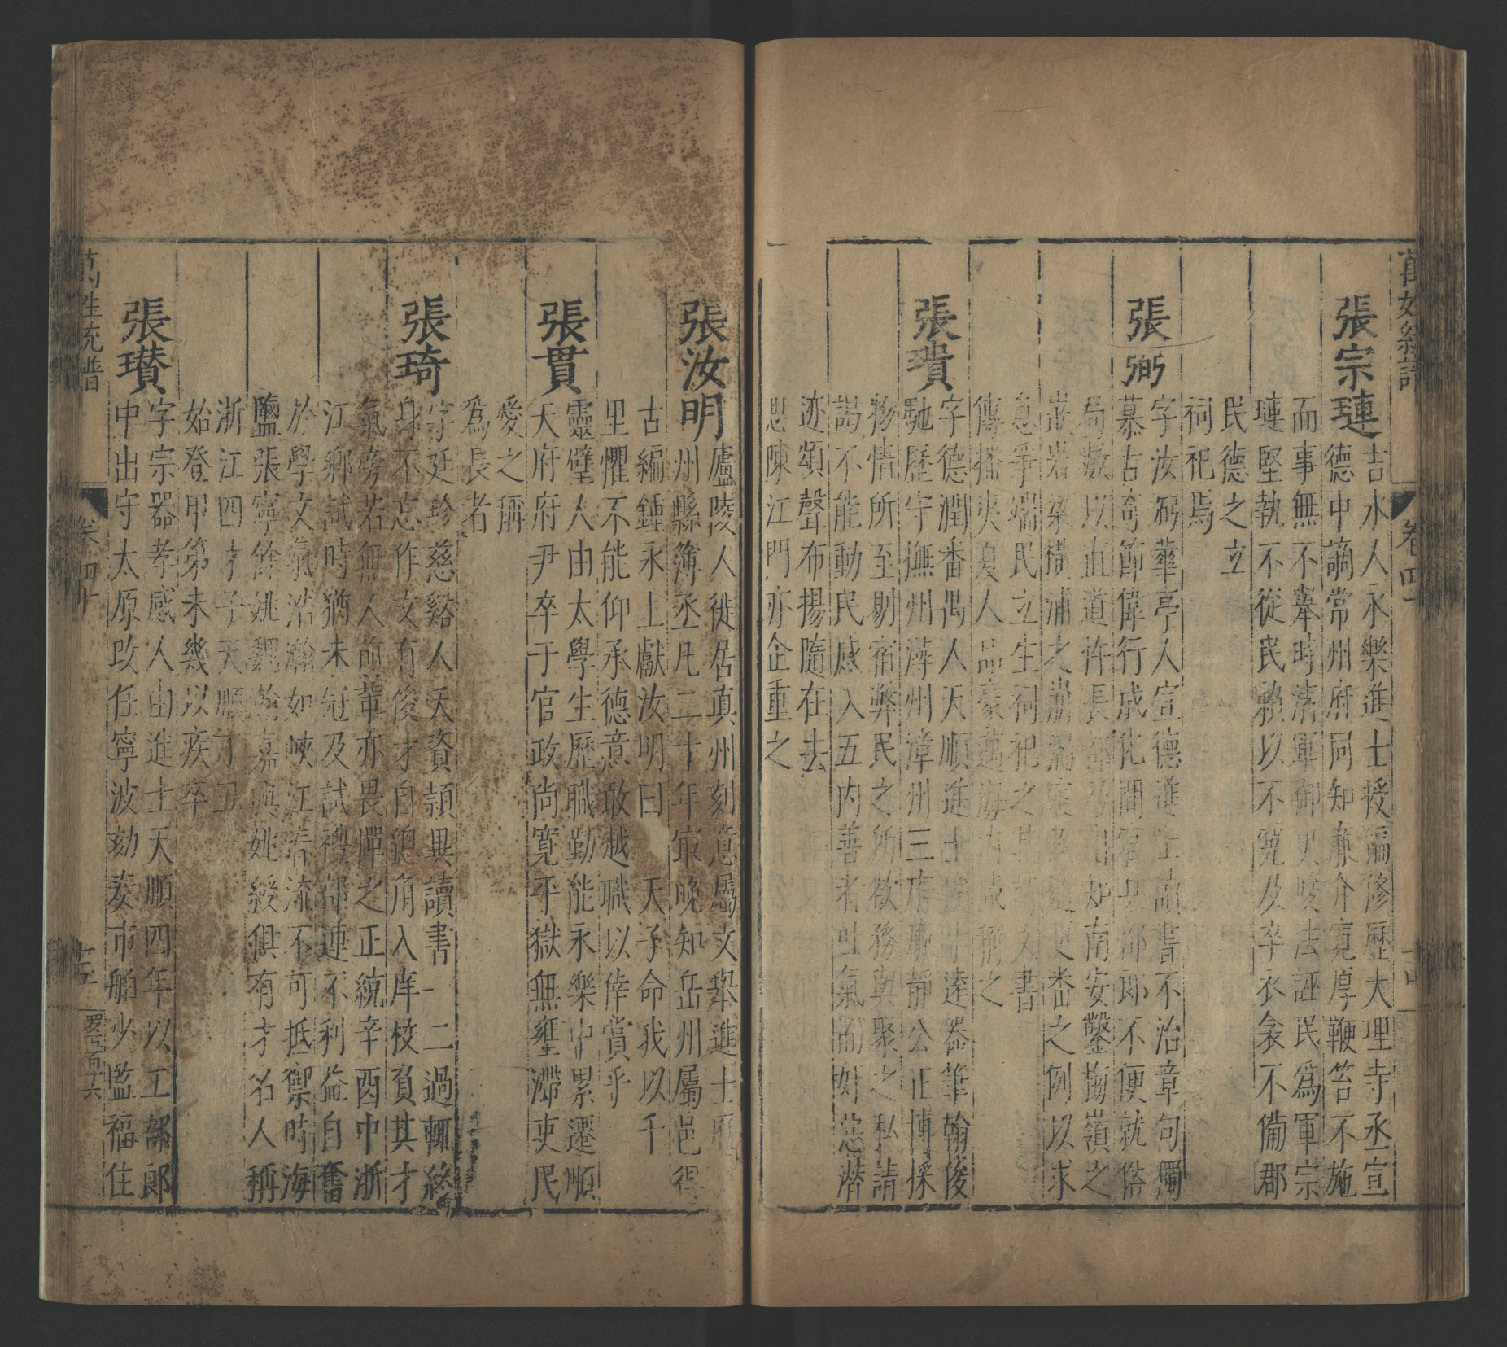 萬姓統譜 卷四十 十四
張宗璉
吉水人永樂進士授編修歷大理寺丞宣
德中謫常州府同知廉介寬厚鞭笞不施
而事無不舉時清軍御史 法誣民為軍宗
璉堅執不從民賴以不冤及卒衣衾不備郡
民德之立
祠祀焉
張弼
字汝弼華亭人宣德進士 書不治章句獨
慕古奇節偉行成化間 郎不便就俗
以直道忤長 知南安鑿梅嶺之
之例以求
息爭端民立生祠祀之 書
人品豪邁海內咸稱之
張瓚
字德潤番禺人天順進士 達器筆翰俊
馳歷守撫州漳州三府廉靜公正博採
物情所至剔宿弊民之所欲務與聚之私請
謁不能動民感入五內善者吐氣而奸惡潛
迹頌聲布揚隨在去
思陳江門亦企重之
張汝明
廬陵人徙居真州刻意屬文舉進士
州縣簿丞凡二十年最晚知岳州屬邑得
古編鍾求上獻汝明曰 天子命我以千
里懼不能仰承德意敢越職以倖賞乎
張貫
靈璧人由太學生歷職勤能永樂中累遷順
天府府尹卒于官政尚寬平獄無壅滯吏民
愛之稱
為長者
張琦
字廷珍慈谿人天資穎異讀書一二過輒終
身不忘作文有俊才自總角入庠校負其才
氣旁若無人前輩亦畏憚之正統辛酉中浙
江鄉試時猶未冠及試禮部連不利益自奮
於學文氣浩瀚如峽江春流不可抵禦時海
鹽張寧餘姚 嘉興姚綬俱有才名人稱
浙江四才子天順丁丑
始登甲第未幾以疾卒
張瓚
字宗器孝感人由進士天順四年以工部郎
中出守太原改任寧波劾奏市舶少監福住
萬姓統譜 卷四十 十五